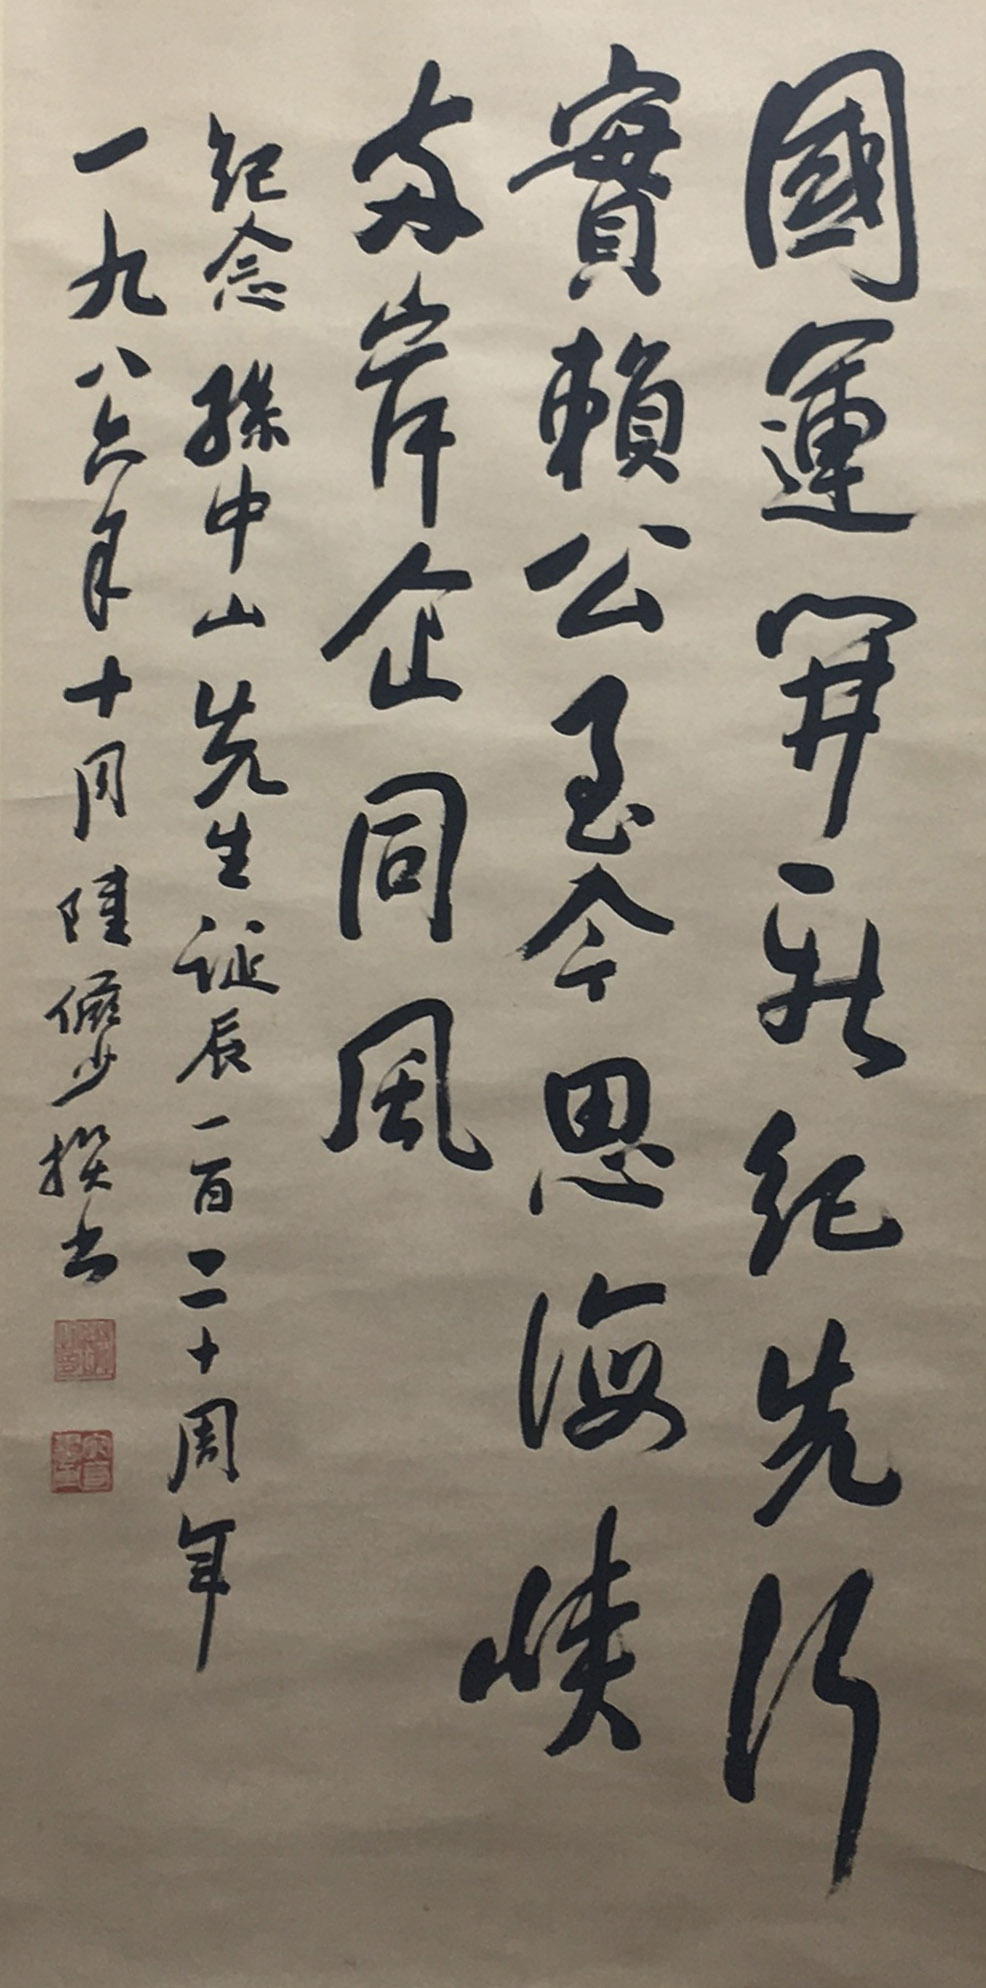 國運開新紀先行
實賴公至今思海峽
兩岸企同風
紀念 孫中山先生誕辰一百二十周年
一九八六年十月陸儼少撰书